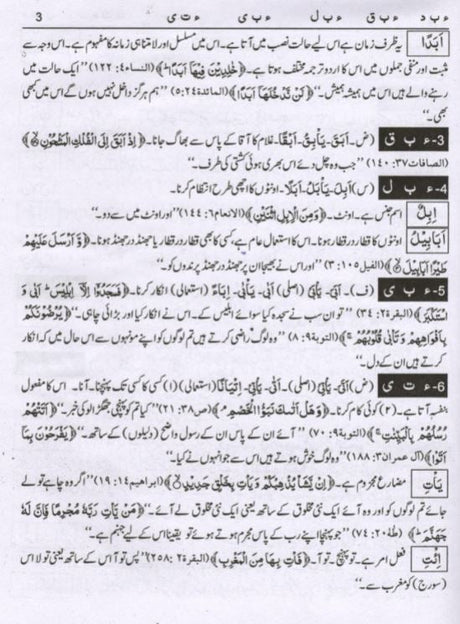 3 ء ب د ء ب ق ء ب ل ء ب ی ء ت ی
اَبَدًا یہ ظرف زمان ہے اس لیے حالت نصب میں آتا ہے۔ اس میں مسلسل اور لا متناہی زمانہ کا مفہوم ہے۔ اس وجہ سے
مثبت اور منفی جملوں میں اس کا اردو ترجمہ مختلف ہوتا ہے۔ ﴿خٰلِدِیْنَ فِیْهَاۤ اَبَدًا ؕ﴾ (النساء۴: ۱۲۲) ”ایک حالت میں
رہنے والے ہیں اس میں ہمیشہ ہمیش۔“ ﴿لَنْ نَّدْخُلَهَاۤ اَبَدًا﴾ (المائدۃ۵: ۲۴) ”ہم ہرگز داخل نہیں ہوں گے اس میں کبھی
بھی۔“
3- ء ب ق (ض) اَبَقَ۔ یَاْبِقُ۔ اَبْقًا۔ غلام کا آقا کے پاس سے بھاگ جانا۔ ﴿اِذْ اَبَقَ اِلَی الْفُلْكِ الْمَشْحُوْنِ ۙ﴾
(الصافات۳۷: ۱۴۰) ”جب وہ چل دئے اس بھری ہوئی کشتی کی طرف۔“
4- ء ب ل (س) اَبِلَ۔ یَاْبَلُ۔ اَبَلًا۔ اونٹوں کا اچھی طرح انتظام کرنا۔
اِبِلٌ اسم جنس ہے۔ اونٹ۔ ﴿وَمِنَ الْاِبِلِ اثْنَیْنِ﴾ (الانعام۶: ۱۴۴) ”اور اونٹ میں سے دو۔“
اَبَابِیْلُ اونٹوں کا قطار در قطار ہونا۔ اس کا استعمال عام ہے، کسی کا بھی قطار در قطار یا جھنڈ در جھنڈ ہونا۔ ﴿وَّ اَرْسَلَ عَلَیْهِمْ
طَیْرًا اَبَابِیْلَ ۙ﴾ (الفیل۱۰۵: ۳) ”اور اس نے بھیجا ان پر جھنڈ در جھنڈ پرندوں کو۔“
5- ء ب ی (ف) اَبَیَ۔ یَاْبَیُ (اصلی) اَبٰی۔ یَاْبٰی۔ اِبَاءً (استعمالی) انکار کرنا۔ ﴿فَسَجَدُوْۤا اِلَّاۤ اِبْلِیْسَ ؕ اَبٰی وَ
اسْتَكْبَرَ﴾ (البقرۃ۲: ۳۴) ”تو ان سب نے سجدہ کیا سوائے ابلیس کے۔ اس نے انکار کیا اور بڑائی چاہی۔“ ﴿یُرْضُوْنَكُمْ
بِاَفْوَاهِهِمْ وَتَاْبٰی قُلُوْبُهُمْ ۚ﴾ (التوبۃ۹: ۸) ”وہ لوگ راضی کرتے ہیں تم لوگوں کو اپنے مونہوں سے اس حال میں کہ انکار
کرتے ہیں ان کے دل۔“
6- ء ت ی (ض) اَتَیَ۔ یَاْتِیُ (اصلی) اَتٰی۔ یَاْتِیْ۔ اِتْیَانًا (استعمالی) (۱) کسی کا کسی تک پہنچنا۔ آنا۔ اس کا مفعول
بنفسہٖ آتا ہے۔ (۲) کوئی کام کرنا۔ ﴿وَهَلْ اَتٰىكَ نَبَؤُا الْخَصْمِ ۘ﴾ (ص۳۸: ۲۱) ”کیا تم کو پہنچی جھگڑالو کی خبر۔“ ﴿اَتَتْهُمْ
رُسُلُهُمْ بِالْبَیِّنٰتِ ۚ﴾ (التوبۃ۹: ۷۰) ”آئے ان کے پاس ان کے رسول واضح (دلیلوں) کے ساتھ۔“ ﴿یَفْرَحُوْنَ بِمَاۤ
اَتَوْا﴾ (آل عمران۳: ۱۸۸) ”وہ لوگ خوش ہوتے ہیں اس سے جو انہوں نے کیا۔“
یَاْتِ مضارع مجزوم ہے۔ ﴿اِنْ یَّشَاْ یُذْهِبْكُمْ وَیَاْتِ بِخَلْقٍ جَدِیْدٍ ۙ﴾ (ابراھیم۱۴: ۱۹) ”اگر وہ چاہے تو لے
جائے تم لوگوں کو اور وہ آئے ایک نئی مخلوق کے ساتھ یعنی ایک نئی مخلوق لے آئے۔“ ﴿مَنْ یَّاْتِ رَبَّهٗ مُجْرِمًا فَاِنَّ لَهٗ
جَهَنَّمَ ؕ﴾ (طٰہٰ۲۰: ۷۴) ”جو پہنچا اپنے رب کے پاس مجرم ہوتے ہوئے تو یقیناً اس کے لیے جہنم ہے۔“
اِئْتِ فعل امر ہے۔ تو پہنچ۔ تو آ۔ ﴿فَاْتِ بِهَا مِنَ الْمَغْرِبِ﴾ (البقرۃ۲: ۲۵۸) ”پس تو آ اس کے ساتھ یعنی تو لا اس
(سورج) کو مغرب سے۔“